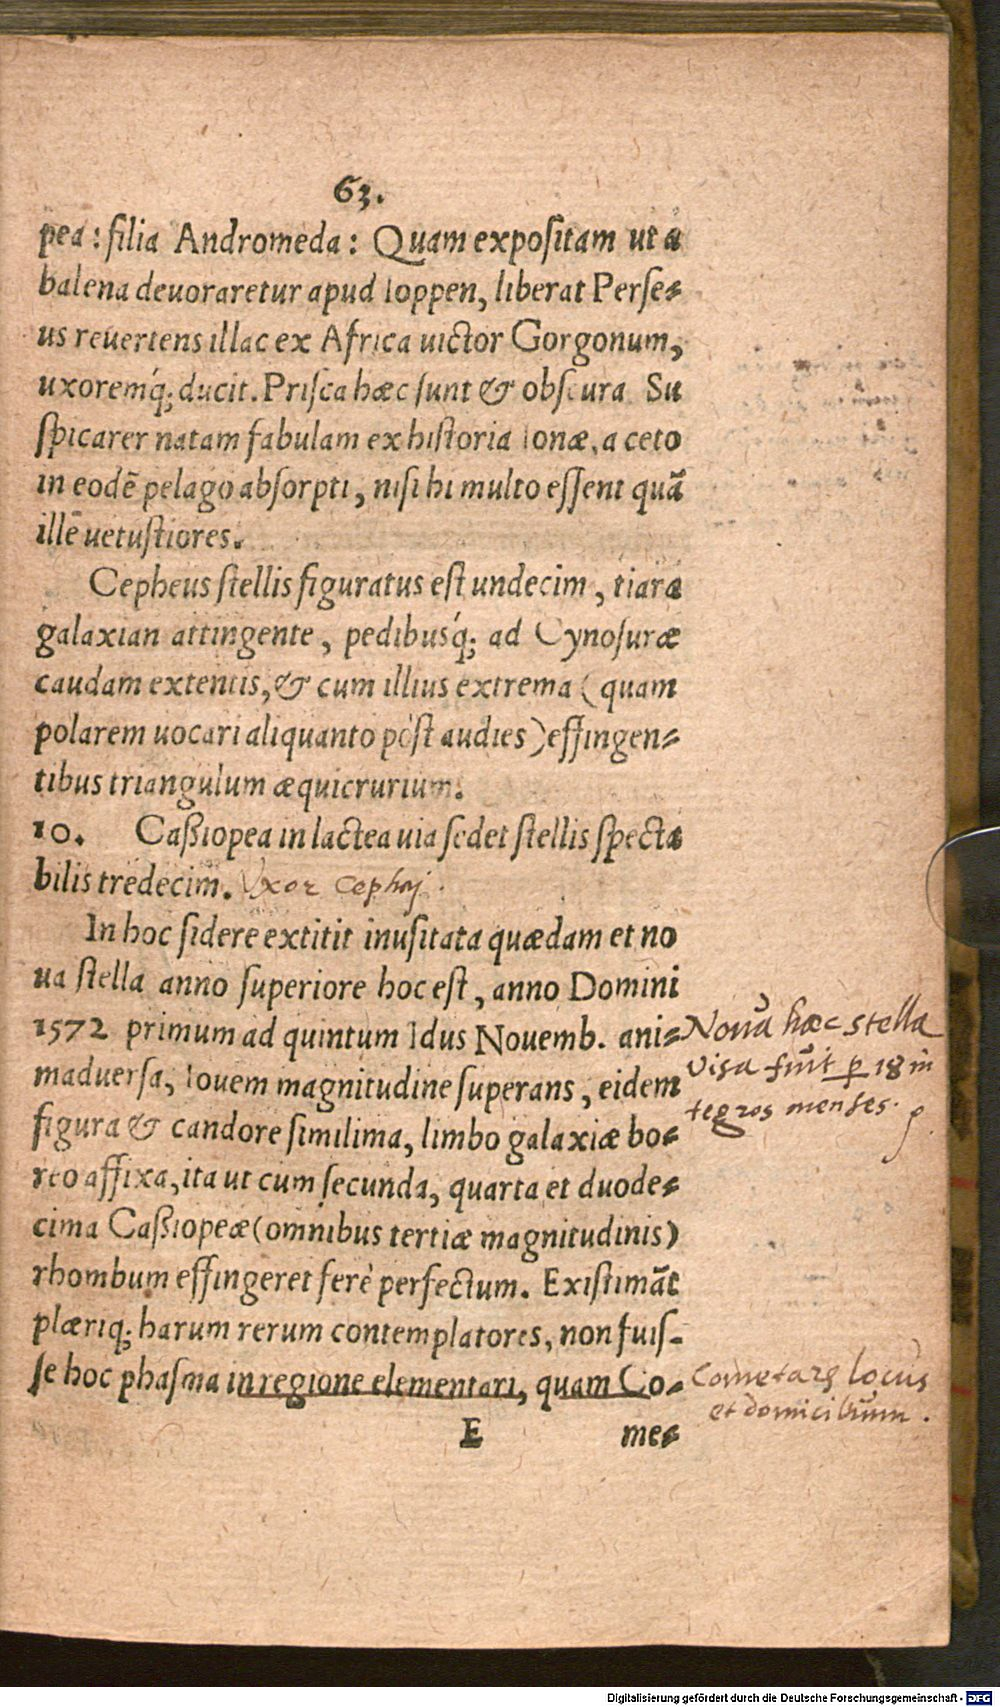 63.
pea: filia Andromeda: Quam expositam ut a
balena deuoraretur apud Ioppen, liberat Perse-
us reuertens illac ex Africa uictor Gorgonum,
uxoremq́; ducit. Prisca hæc sunt & obscura Su
spicarer natam fabulam ex historia Ionæ, a ceto
in eodē pelago absorpti, nisi hi multo essent quā
illē uetustiores.
Cepheus stellis figuratus est undecim, tiara
galaxian attingente, pedibusq́; ad Cynosuræ
caudam extentis, & cum illius extrema (quam
polarem uocari aliquanto pòst audies) effingen-
tibus triangulum æquicrurium.
10. Caßiopea in lactea uia sedet stellis specta
bilis tredecim. Vxor Cephej.
In hoc sidere extitit inusitata quædam et no
ua stella anno superiore hoc est, anno Domini
1572 primum ad quintum Idus Nouemb. ani-
maduersa, Iouem magnitudine superans, eidem
figura & candore similima, limbo galaxiæ bo-
reo affixa, ita ut cum secunda, quarta et duode-
cima Caßiopeæ (omnibus tertiæ magnitudinis)
rhombum effingeret ferè perfectum. Existimāt
plæriq; harum rerum contemplatores, non fuis-
se hoc phasma in regione elementari, quam Co-
E mes
Noua hæc stella
visa fuit p̱ 18 in
tegros menses.
Cometarꝝ locus
et domicilium.
Digitalisierung gefördert durch die Deutsche Forschungsgemeinschaft - DFG